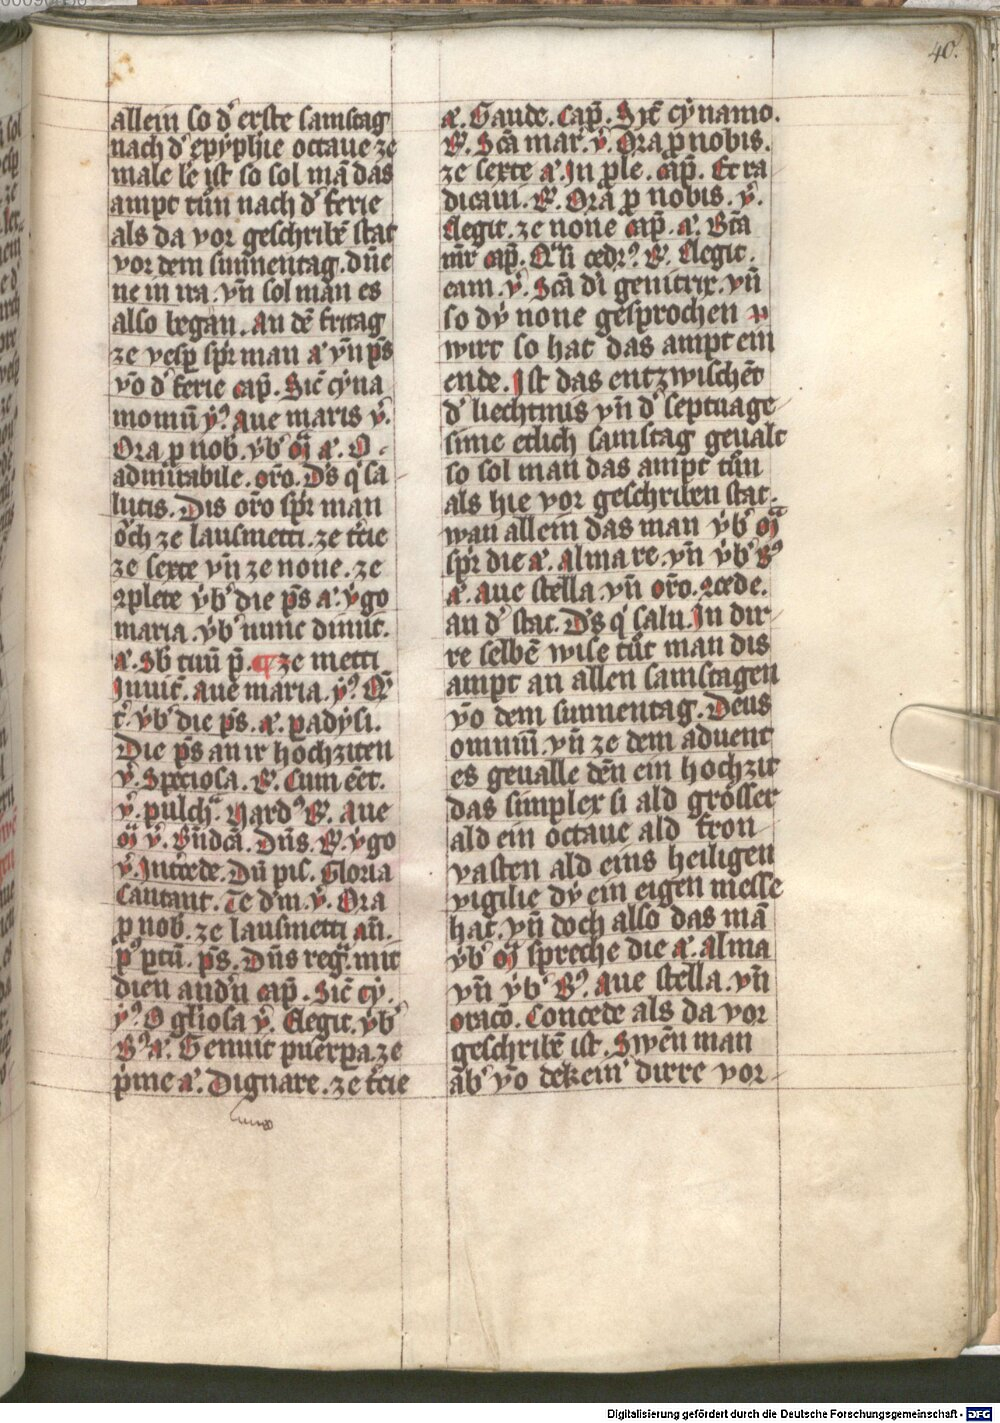 40.
allein so d' erste samstag
nach d' epyphie octaue ze
male le ist so sol mā das
ampt tůn nach d' ferie
als da vor geschribē stat
vor dem sunnentag. dn̄e
ne in ira. vn̄ sol man es
also began. An dē fritag
ze vesp spr̄ man a' vn̄ ps̄
vō d' ferie cap̄. Sic̄ cyna
momū y⁹. Aue maris v̓.
Ora p nob. vb' m̄ a'. O
admirabile. or̄o. Ds̄ q' sa
lutis. Dis or̄o spr̄ man
och ze lausmetti. ze t̄cie
ze sexte vn̄ ze none. ze
ꝯplete vb' die ps̄ a'. v̓go
maria. vb' nunc dimit̄.
a'. Sb tuū p̄. ze metti
Inuit̄. aue maria. y⁹. Q̄
t'. vb' die ps̄. a'. padysi.
Die ps̄ an ir hochziten
v̓. Speciosa. R'. Cum eēt.
v̓. pulch̄. Nard⁹ R'. Aue
m̄ v̓. Bn̄dcā. Dn̄s. R'. v̓go
v̓. Int̄cede. Dū pis. Gloria
Cantant. Te dm̄. v̓. Ora
p nob'. ze lausmetti an̄.
p⁹ ptū. ps̄. Dn̄s reḡ. mit
dien and'n cap̄. Sic̄ cy.
y⁹. O gl'iosa v̓. Elegit. vb'
B⁹ a'. Genuit puerpa. ze
p'me a'. Dignare. ze t̄cie
a'. Gaude. Cap̄. Sic̄ cynamo.
R'. Scā mar'. v̓. Ora p nobis.
ze sexte a'. In ple. cap̄. Et ra
dicaui. R'. Ora p nobis. v̓.
Elegit. ze none cap̄. a'. Bt̄a
mr̄ cap̄. Q̄si cedr⁹. R'. Elegit.
eam. v̓. Scā di genitrix. vn̄
so dy none gesprochen
wirt so hat das ampt ein
ende. Ist das entzwischēt
d' liechtmis vn̄ d' septuage
sime etlich samstag geualt
so sol man das ampt tůn
als hie vor geschriben stat.
wan allein das man vb' m̄
spr̄ die a'. alma re. vn̄ vb' B⁹
a'. aue stella. vn̄ or̄o. ꝯcede.
an d' stat. Ds̄ q' salu. In dir
re selbē wise tůt man dis
ampt an allen samstagen
vō dem sunnentag. Deus
omniū. vn̄ ze dem aduent
es geualle dēn ein hochzit
das simplex si ald grösser
ald ein octaue ald fron
vasten ald eins heiligen
vigilie dy ein eigen messe
hat. vn̄ doch also das mā
vb' m̄ spreche die a'. alma
vn̄ vb' B⁹. Aue stella. vn̄
oracō. Concede als da vor
geschribē ist. Swēn man
ab' vō dekein' dirre vor
Digitalisierung gefördert durch die Deutsche Forschungsgemeinschaft - DFG